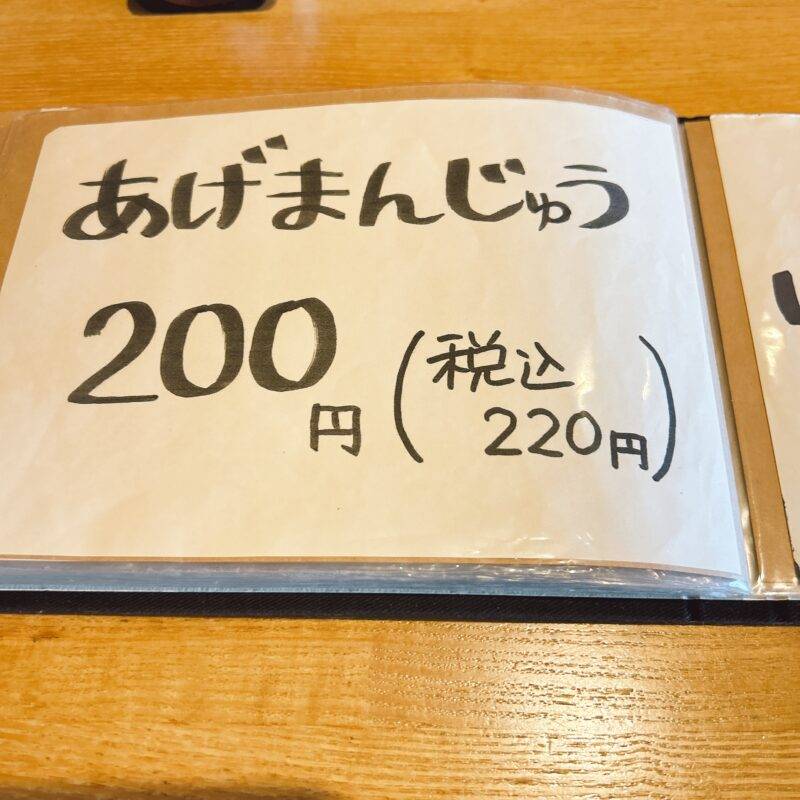 あげまんじゅう
200円(税込
220円)